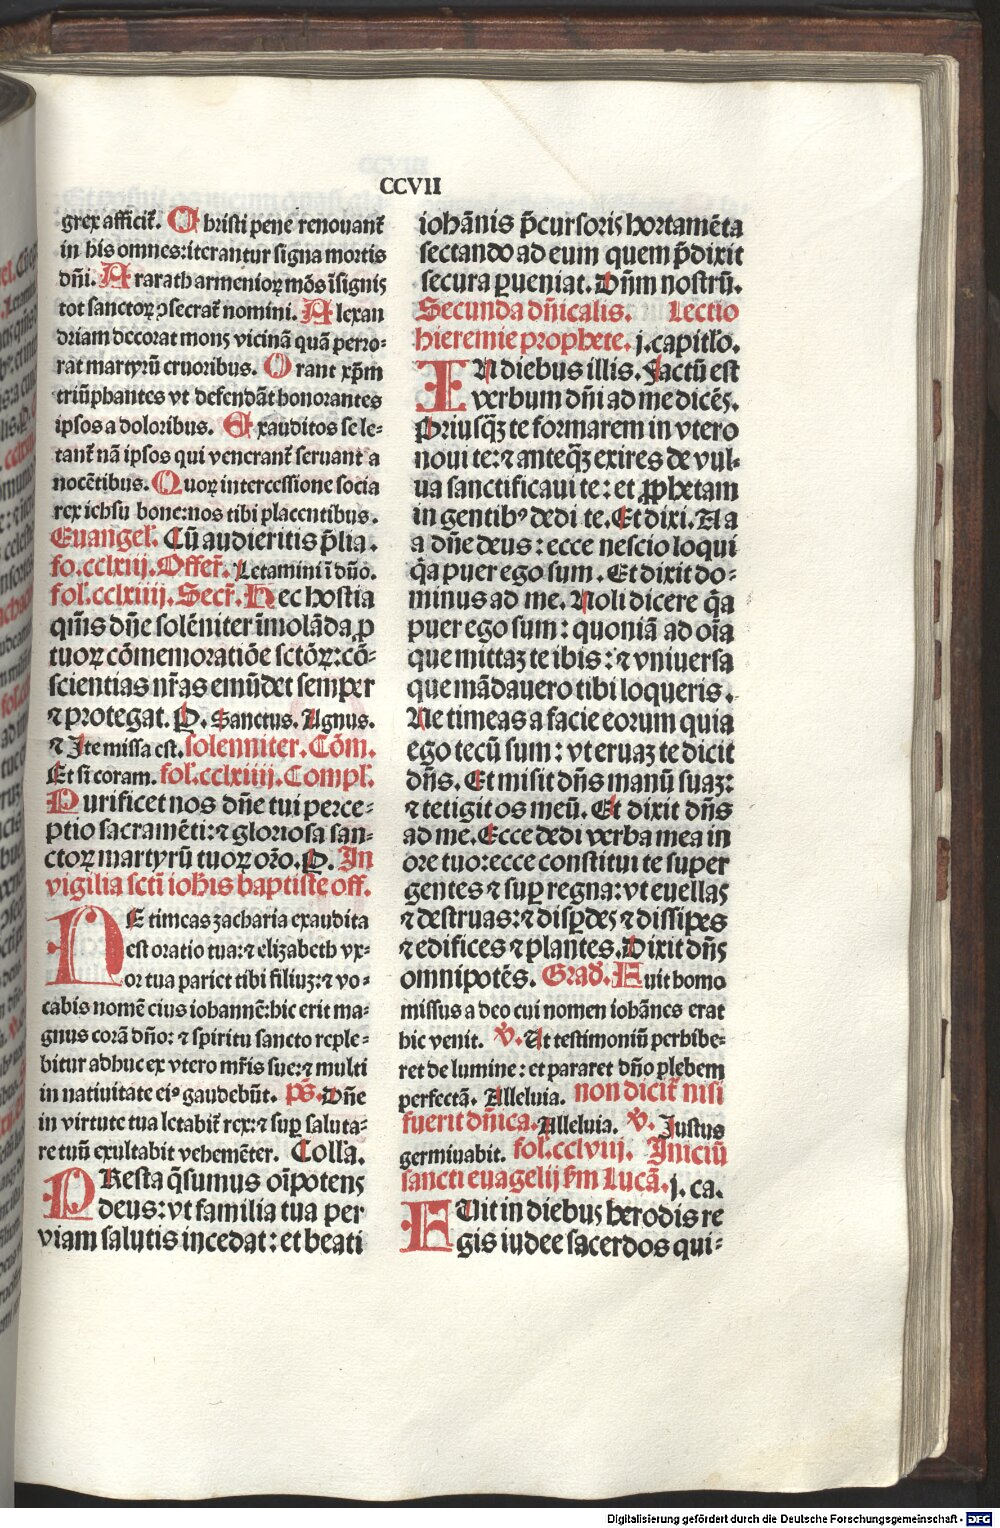 CCVII
grex afficit̃. Christi pene renouant̃
in his omnes:iterantur signa mortis
dñi. Ararath armenioꝝ mõs ĩsignis
tot sanctoꝝ ꝯsecrat̃ nomini. Alexan
driam decorat mons vicinã quã perro⸗
rat martyrũ cruoribus. Orant xp̃m
triũphantes vt defendãt honorantes
ipsos a doloribus. Exauditos se le⸗
tant̃ nã ipsos qui venerant̃ seruant a
nocẽtibus. Quoꝝ intercessione socia
rex iehsu bone:nos tibi placentibus.
Euangel̃. Cũ audieritis p̃lia.
fo.cclxiij. Offer̃. Letamini ĩ dño.
fol.cclxiiij. Secr̃. Hec hostia
qũs dñe solẽniter ĩmolãda ꝓ
tuoꝝ cõmemoratiõe sctõꝝ:cõ⸗
scientias nr̃as emũdet semper
⁊ protegat. P. Sanctus. Agnus.
⁊ Ite missa est. solenniter. Cõm.
Et si coram. fol.cclxiiij. Compl̃.
Purificet nos dñe tui perce⸗
ptio sacramẽti:⁊ gloriosa san⸗
ctoꝝ martyrũ tuoꝝ orõ. P. In
vigilia sctĩ ioh̃is baptiste off.
NE timeas zacharia exaudita
est oratio tua:⁊ elizabeth vx⸗
or tua pariet tibi filiuꝫ:⁊ vo⸗
cabis nomẽ eius iohannẽ:hic erit ma⸗
gnus corã dño: ⁊ spiritu sancto reple⸗
bitur adhuc ex vtero mr̃is sue:⁊ multi
in natiuitate eiꝰ gaudebũt. p̃s. Dñe
in virtute tua letabit̃ rex:⁊ suꝑ saluta⸗
re tuũ exultabit vehemẽter. Coll̃a.
PResta q̃sumus oĩpotens
deus:vt familia tua per
viam salutis incedat:et beati
iohãnis p̃cursoris hortamẽta
sectando ad eum quem p̃dixit
secura ꝑueniat. Dñm nostrũ.
Secunda dñicalis. Lectio
hieremie prophete. j.capitlo.
IN diebus illis. Factũ est
verbum dñi ad me dicẽs.
Priusq̃ꝫ te formarem in vtero
noui te:⁊ anteq̃ꝫ exires de vul⸗
ua sanctificaui te: et ꝓphetam
in gentibꝰ dedi te. Et dixi. A a
a dñe deus: ecce nescio loqui
q̃a puer ego sum. Et dixit do⸗
minus ad me. Noli dicere q̃a
puer ego sum: quoniã ad oĩa
que mittaꝫ te ibis:⁊ vniuersa
que mãdauero tibi loqueris.
Ne timeas a facie eorum quia
ego tecũ sum: vt eruaꝫ te dicit
dñs. Et misit dñs manũ suaꝫ:
⁊ tetigit os meũ. Et dixit dñs
ad me. Ecce dedi verba mea in
ore tuo:ecce constitui te super
gentes ⁊ suꝑ regna: vt euellas
⁊ destruas:⁊ disꝑdes ⁊ dissipes
⁊ edifices ⁊ plantes. Dixit dñs
omnipotẽs. Grad̃. Fuit homo
missus a deo cui nomen iohãnes erat
hic venit. ꝟ. Ut testimoniũ perhibe⸗
ret de lumine: et pararet dño plebem
perfectã. Alleluia. non dicit̃ nisi
fuerit dñica. Alleluia. ꝟ. Justus
germinabit. fol.cclviij. Iniciũ
sancti euãgelij ẜm Lucã. j. ca.
FUit in diebus herodis re
gis iudee sacerdos qui⸗
Digitalisierung gefördert durch die Deutsche Forschungsgemeinschaft - DFG